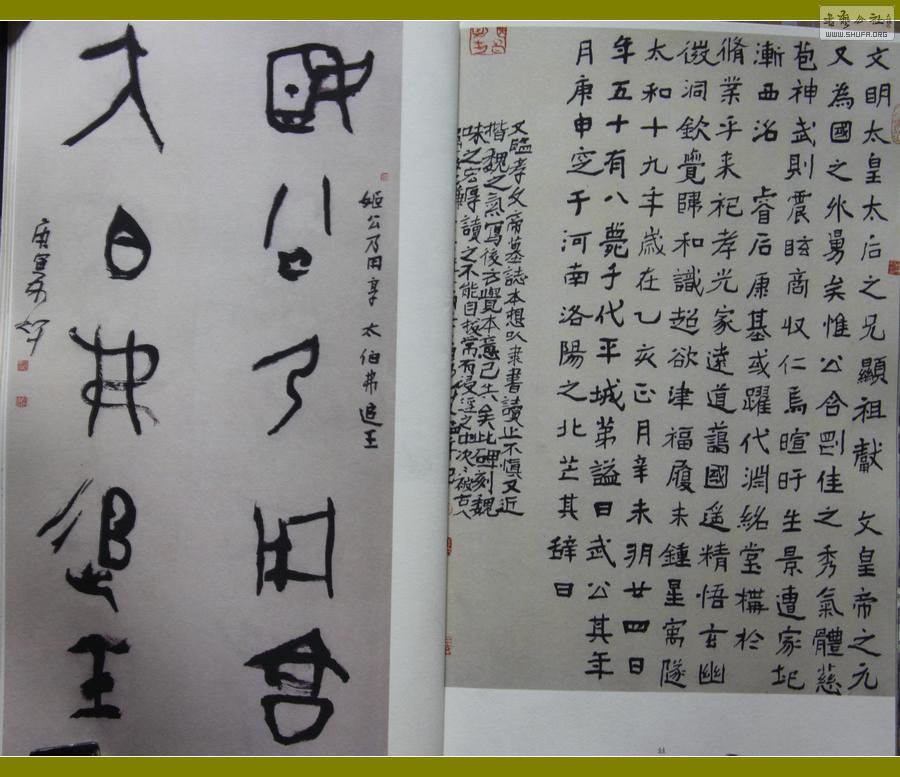 WWW.SHUFA.ORG
文明太皇太后之兄顯祖獻 文皇帝之元
又為國之外舅矣惟公含剛佳之秀氣體慈
苞神武則震眩商収仁焉暄旴生景遭家圯
漸西沿 睿后康基或躍代淵紹堂構於
脩業乎来祀孝光家遠道藹國遙精悟玄幽
微洞欽覺歸和識超欲津福履未鍾星寓隧
太和十九年歲在乙亥正月辛未朔廿四日
年五十有八薨于代平城第謚曰武公其年
月庚申窆于河南洛陽之北芒其辞曰
又臨孝文帝墓誌本想以隶書讀止不慎又近
楷魏之氣寫後方覺本意已失矣此碑刻魏
味之宏厚讀之不能自拔常而浸淫之也次次被古人
姬公乃用享 太伯弗追王
公乃用享
大白弗追王
庚寅